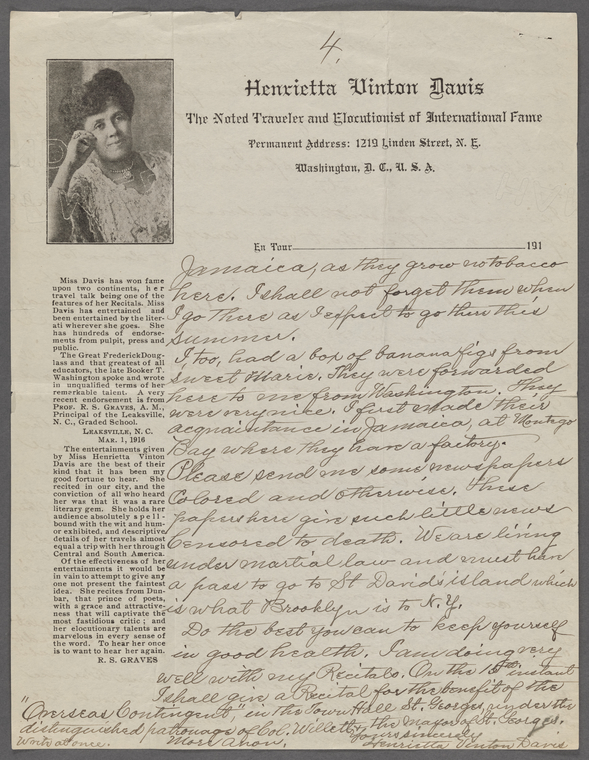 4,
Henrietta Vinton Davis
The Noted Traveler and Elocutionist of International Fame
Permanent Address: 1219 Linden Street, N. E.
Washington, D. C., U. S. A.
En Tour 191
Miss Davis has won fame
upon two continents, her
travel talk being one of the
features of her Recitals. Miss
Davis has entertained and
been entertained by the liter-
ati wherever she goes. She
has hundreds of endorse-
ments from pulpit, press and
public.
The Great Frederick Doug-
lass and that greatest of all
educators, the late Booker T.
Washington spoke and wrote
in unqualified terms of her
remarkable talent. A very
recent endorsement is from
Prof. R. S. Graves, A. M.,
Principal of the Leaksville,
N. C., Graded School.
Leaksville, N. C.
Mar. 1, 1916
The entertainments given
by Miss Henrietta Vinton
Davis are the best of their
kind that it has been my
good fortune to hear. She
recited in our city, and the
conviction of all who heard
her was that it was a rare
literary gem. She holds her
audience absolutely spell-
bound with the wit and hum-
or exhibited, and descriptive
details of her travels almost
equal a trip with her through
Central and South America.
Of the effectiveness of her
entertainments it would be
in vain to attempt to give any
one not present the faintest
idea. She recites from Dun-
bar, that prince of poets,
with a grace and attractive-
ness that will captivate the
most fastidious critic; and
her elocutionary talents are
marvelous in every sense of
the word. To hear her once
is to want to hear her again.
R. S. GRAVES
Jamaica, as they grow no tobacco
here. I shall not forget them when
I go there as I expect to go there this
summer.
I, too, had a box of banana figs from
Sweet Marie. They were forwarded
here to me from Washington. They
were very nice. I first made their
acquaintance in Jamaica, at Montego
Bay where they have a factory.
Please send me some newspapers
Colored and otherwise. These
papers here give such little news
Censored to death. We are living
under martial law and must have
a pass to go to St David's island which
is what Brooklyn is to N.Y.
Do the best you can to keep yourself
in good health. I am doing very
well with my Recitals. On the 15th instant
I shall give a Recital for the benefit of the
"Overseas Contingent," in the Town Hall St. Georges, under the
distinguished patronage of Col. Willett, & the Mayor of St. Georges.
Write at once. More anon, Yours sincerely
Henrietta Vinton Davis